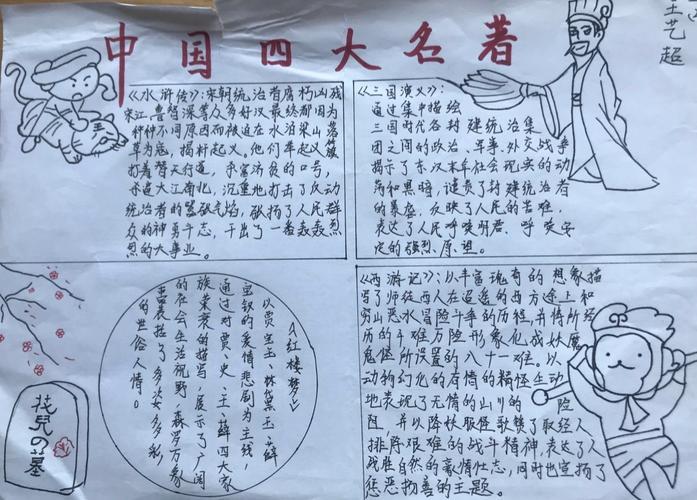 中国四大名著
王艺超
《水浒传》:宋朝统治者腐朽凶残
宋江、鲁智深等众多好汉最终都因为
种种不同原因而被迫在水泊梁山落
草为寇,揭杆起义。他们率起义
打着替天行道,杀富济贫的口号,
永追大江南北,沉重地打击了反动
统治者的嚣张气焰,献扬了人民群
众的神勇斗志,干出了一番轰轰烈
烈的大事业。
《三国演义》:
通过集中描绘
三国时代各封建统治集
团之间的政治、军事、外交战争
揭示了东汉末年社会现实的动
荡和黑暗,谴责了封建统治者
的暴虐,反映了人民的苦难,
表达了人民呼唤明君、呼唤安
定的强烈原望。
《红楼梦》
以贾宝玉、林黛玉、薛
宝钗的爱情悲剧为主线,
通过对贾、史、王、薛四大家
族荣衰的描写,展示了广阔
的社会生活视野,森罗万象
囊括了多姿多彩
的世俗人情。
花儿の墓
《西游记》:以丰富瑰有的想象描
写了师徒四人在迢遥的西方途上和
穷山恶水冒险斗争的历程,并将所经
历的千难万险形象化成妖魔
鬼怪所设置的八十一难。以
动物幻化的有情的精怪生动
地表现了无情的山川的险
阻,并以降妖服怪歌赞了取经人
排除艰难的战斗精神,表达了人
战胜自然的豪情壮志,同时也宣扬了
惩恶扬善的主题。